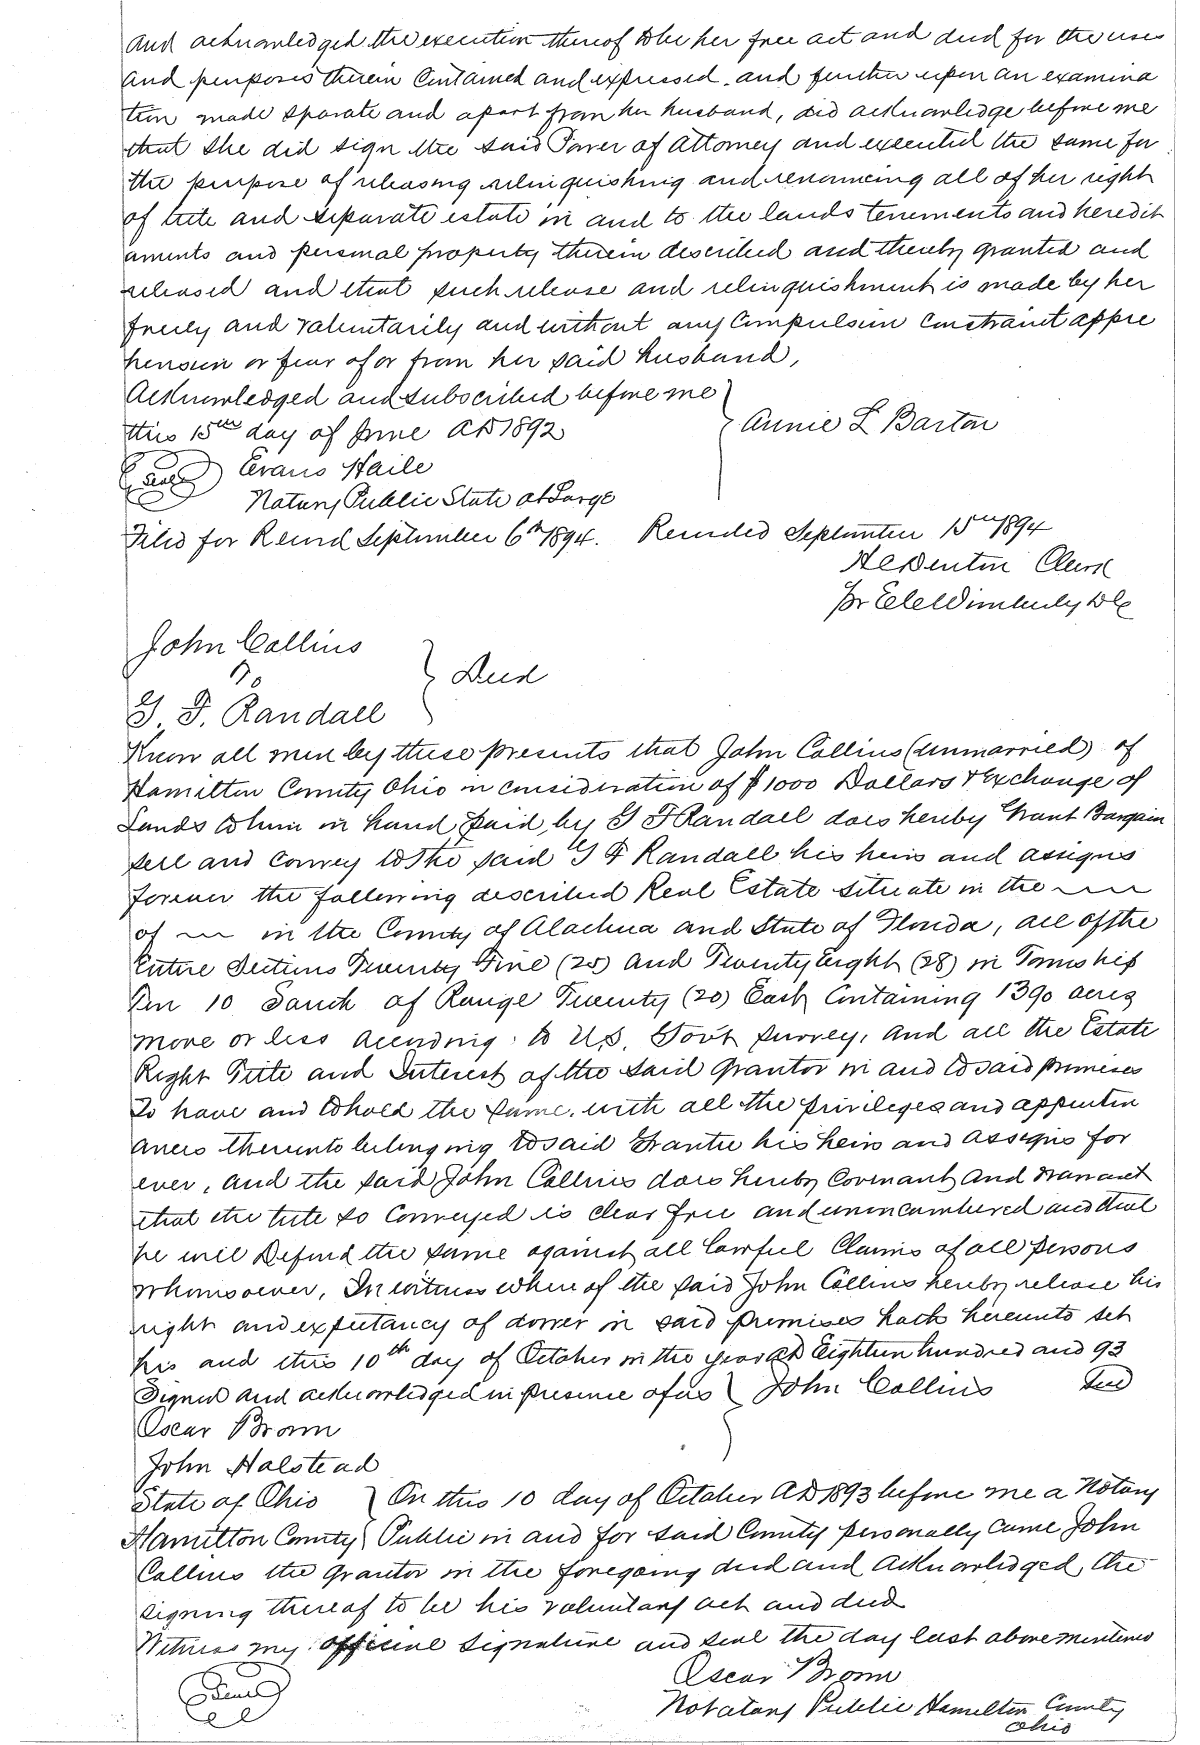 and acknowledged the execution thereof to be her free act and deed for the uses
and purposes therein Contained and expressed. and further upon an examina
tion made sparate and apart from her husband, did acknowledge before me
that She did sign the said Power of Attorney and executed the same for
the purpose of releasing relinquishing and renouncing all of her right
of title and separate estate in and to the lands tenements and heredit
aments and personal property therein described and thereby granted and
released and that such release and relinquishment is made by her
freely and voluntarily and without any Compulsion Constraint appre
hension or fear of or from her said husband,
Acknowledged and subscribed before me
this 15th day of June AD 1892
Annie L Barton
Seal
Evans Haile
Notary Public State at Large
Filed for Record September 6th 1894. Recorded September 15th 1894
H C Denton Clerk
pr E C Wimberly D C
John Collins
To
Deed
G. F. Randall
Know all men by these presents that John Collins (unmarried) of
Hamilton County Ohio in consideration of $1000 Dollars & Exchange of
Lands to him in hand paid by G F Randall does hereby Grant Bargain
sell and Convey to the said G F Randall his heirs and assigns
forever the following described Real Estate situate in the
of in the County of Alachua and State of Florida, all of the
Entire Sections Twenty Five (25) and Twenty Eight (28) in Township
Ten 10 South of Range Twenty (20) East Containing 1390 acres
more or less according to U.S. Gov't Survey, and all the Estate
Right Title and Interest of the said grantor in and to said premises
To have and to hold the same, with all the privileges and appurten
ances thereunto belonging to said Grantee his heirs and assigns for
ever, and the said John Collins does hereby Covenant and Warrant
that the title so Conveyed is clear free and unincumbered and that
he will Defend the same against all lawful Claims of all persons
whomsoever, In witness where of the said John Collins hereby release his
right and expectancy of dower in said premises hath hereunto set
his and this 10th day of October in the year AD Eighteen hundred and 93
Signed and acknowledged in presence of us John Collins Seal
Oscar Brown
John Halstead
State of Ohio On this 10 day of October AD 1893 before me a Notary
Hamilton County Public in and for said County personally came John
Collins the grantor in the foregoing deed and acknowledged the
signing thereof to be his voluntary act and deed
Witness my official signature and seal the day last above mentioned
Seal
Oscar Brown
Notatary Public Hamilton County
Ohio